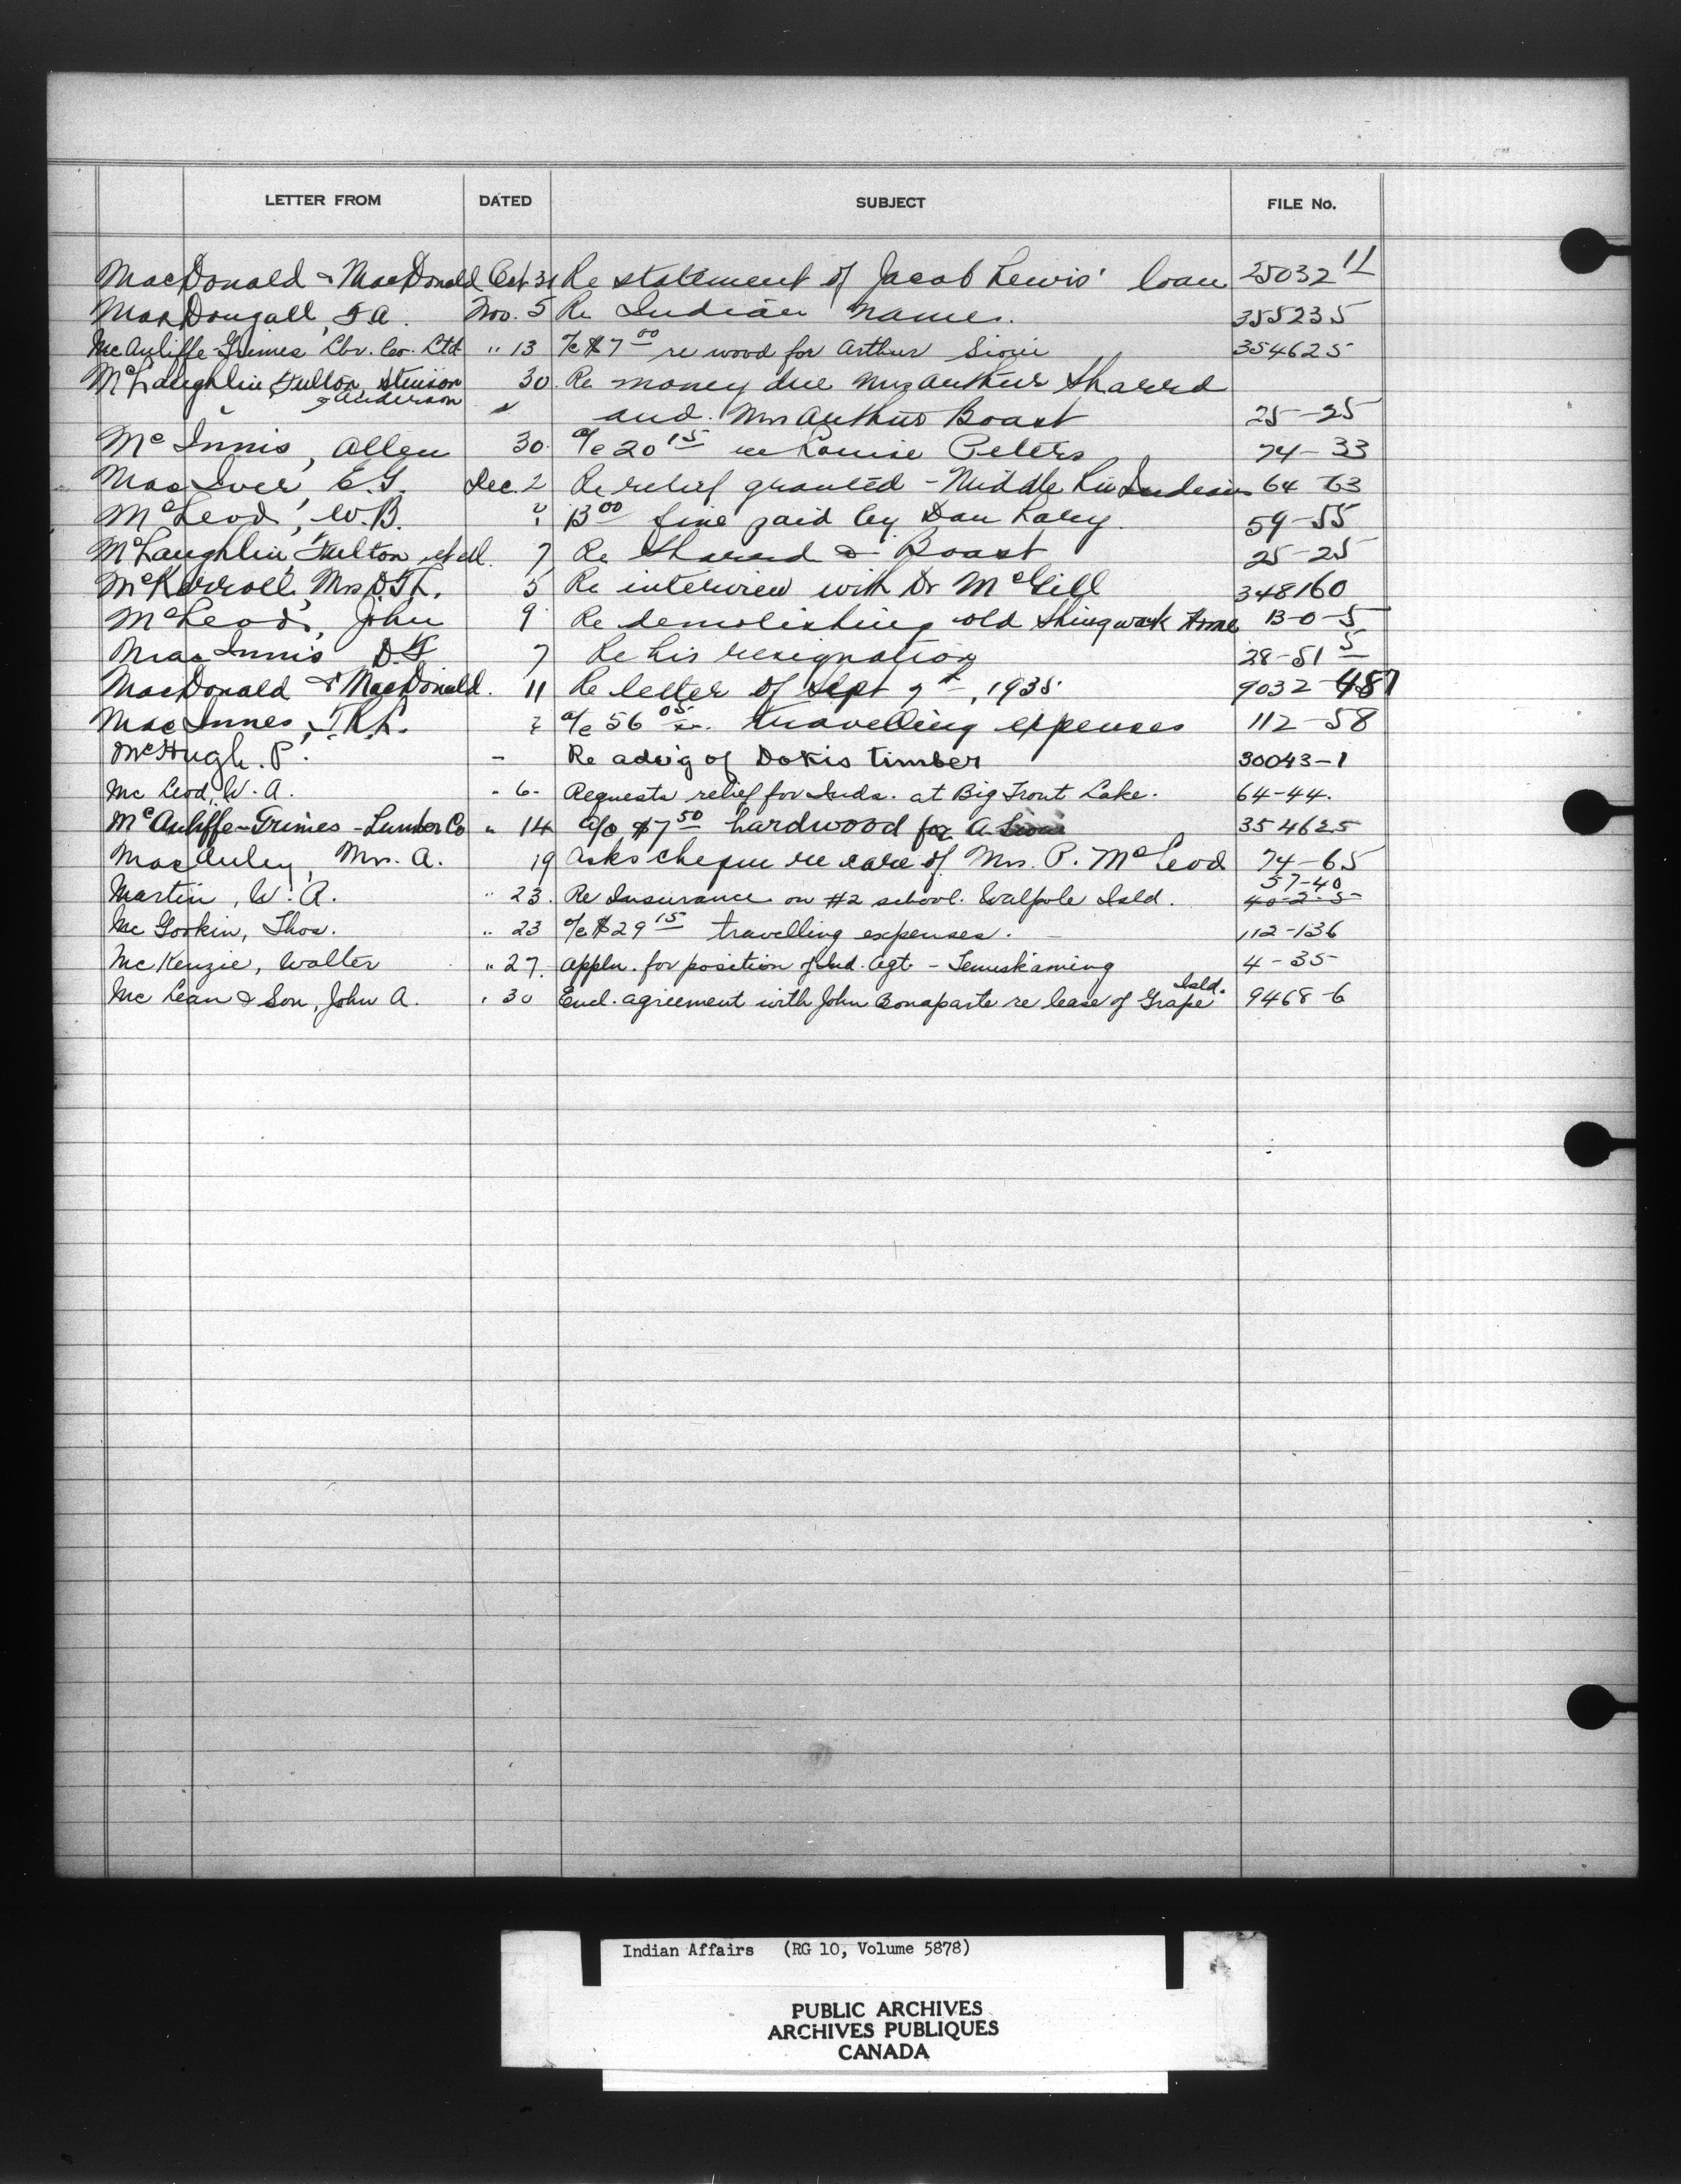 LETTER FROM DATED SUBJECT FILE No.
MacDonald & MacDonald Oct 31 Re statement of Jacob Lewis' loan 25032 11
MacDougall, F A. Nov. 5 Re Indian names. 355235
McAuliffe-Grimes Lbr. Co. Ltd " 13 a/c $7 00 re wood for Arthur Sioui 354625
McLaughlin Fulton, Stinson 30 Re money due Mrs Arthur Sharrd
& Anderson " and Mrs Arthur Boast 25-25
McInnis, Allen 30 a/c 20 15 re Louise Peters 74-33
MacIver, E.G. Dec. 2 Re relief granted - Middle Riv Indians 64-63
McLeod, W.B. " 13 00 fine paid by Dan 59-55
McLaughlin Fulton et al. 7 Re Sharrd & Boast 25-25
Mrs D. 5 Re interview with Dr McGill 348160
McLeod, John 9 Re demolishing old Shingwauk Home 13-0-5
MacInnis D.F 7 Re his resignation 28-51 5
MacDonald & MacDonald. 11 Re letter of Sept 7th, 1935 9032-487
MacInnes, T.R.L. a/c 56 05 travelling expenses 112-58
McHugh. P. - Re adv'g of Dokis timber 30043-1
Mc Leod, W. A. " 6- Requests relief for Inds. at Big Trout Lake. 64-44.
McAuliffe-Grimes-Lumber Co " 14 a/c $7 50 hardwood for A Sioui 354625
MacAuley, Mrs. A. 19 Asks cheque re care of Mrs. P. McLeod 74-65
57-40
Martin, W. A. " 23. Re Insurance on #2 school. Walpole Isld. 40-2-5
Mc Gookin, Thos. " 23 a/c $29 15 travelling expenses. 112-136
Mc Kenzie, Walter " 27. Appln. for position of Ind. Agt - Temiskaming 4-35
Isld.
Mc Lean & Son, John A. " 30 Encl. agreement with John Bonaparte re lease of Grape 9468-6
Indian Affairs (RG 10, Volume 5878)
PUBLIC ARCHIVES
ARCHIVES PUBLIQUES
CANADA